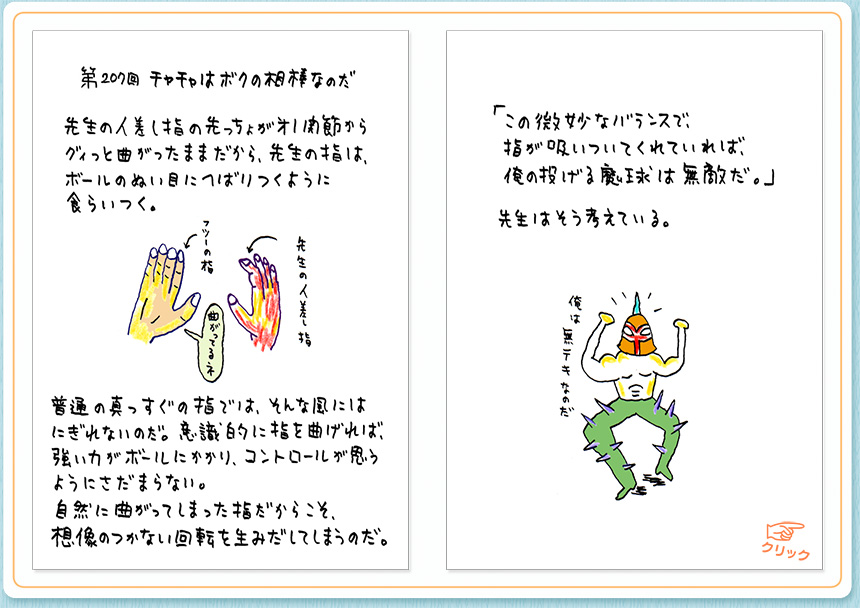 第207回 チャチャはボクの相棒なのだ
先生の人差し指の先っちょが才1関節から
グィっと曲がったままだから、先生の指は、
ボールのぬい目にへばりつくように
食らいつく。
フツーの指
先生の人差し指
曲がってるネ
普通の真っすぐの指では、そんな風には
にぎれないのだ。意識的に指を曲げれば、
強い力がボールにかかり、コントロールが思う
ようにさだまらない。
自然に曲がってしまった指だからこそ、
想像のつかない回転を生みだしてしまうのだ。
「この微妙なバランスで、
指が吸いついてくれていれば、
俺の投げる魔球は無敵だ。」
先生はそう考えている。
俺は無テキなのだ
クリック